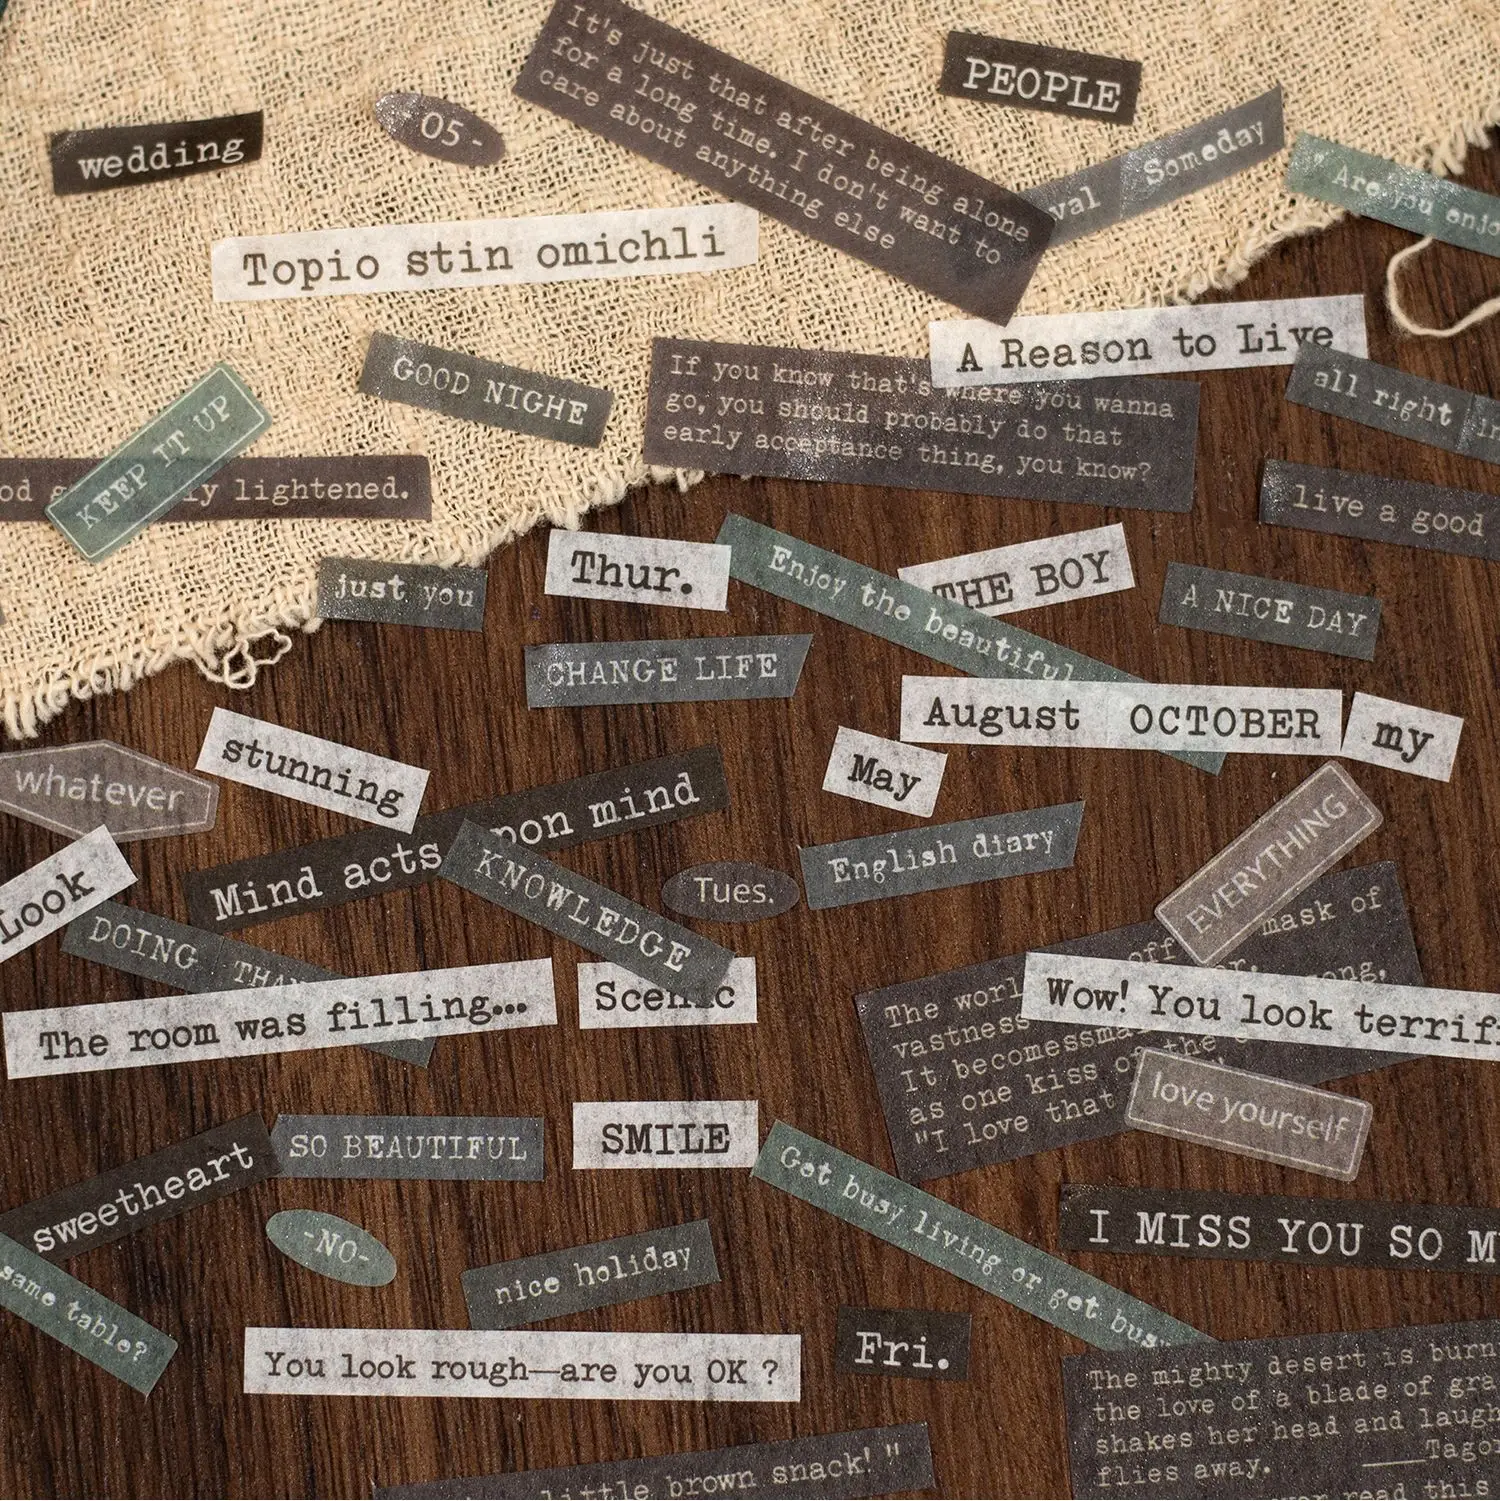 It's just that after being alone
for a long time. I don't want to
care about anything else
PEOPLE
wedding
05-
Someday
"Are you enjo
Topio stin omichli
A Reason to Live
GOOD NIGHE
If you know that's where you wanna
go, you should probably do that
early acceptance thing, you know?
all right
KEEP IT UP
lightened.
live a good
just you
Thur.
Enjoy the beautiful
THE BOY
A NICE DAY
CHANGE LIFE
August OCTOBER
my
stunning
whatever
May
Mind acts upon mind
KNOWLEDGE
Tues.
English diary
EVERYTHING
Look
DOING
The room was filling...
Scenic
mask of
The world
off
vastness
It becomes
as one kiss of the
"I love that
Wow! You look terrif
love yourself
SO BEAUTIFUL
SMILE
sweetheart
Get busy living or get busy
I MISS YOU SO M
-NO-
nice holiday
same table?
You look rough—are you OK ?
Fri.
The mighty desert is burn
the love of a blade of gra
shakes her head and laugh
flies away.
____Tagor
read this
little brown snack! "